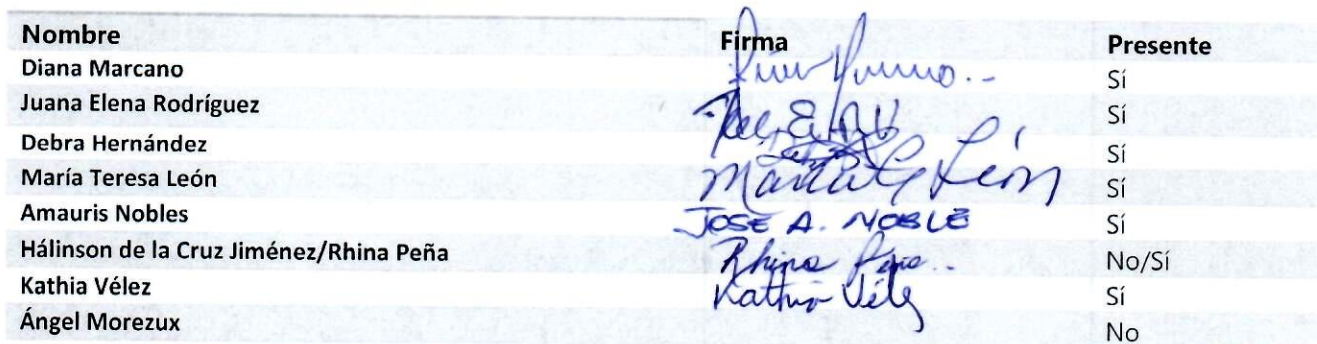 Nombre Firma Presente
Diana Marcano Sí
Juana Elena Rodríguez Sí
Debra Hernández Sí
María Teresa León León Sí
Amauris Nobles JOSE A. NOBLE Sí
Hálinson de la Cruz Jiménez/Rhina Peña Rhina No/Sí
Kathia Vélez Kathia Vélez Sí
Ángel Morezux No